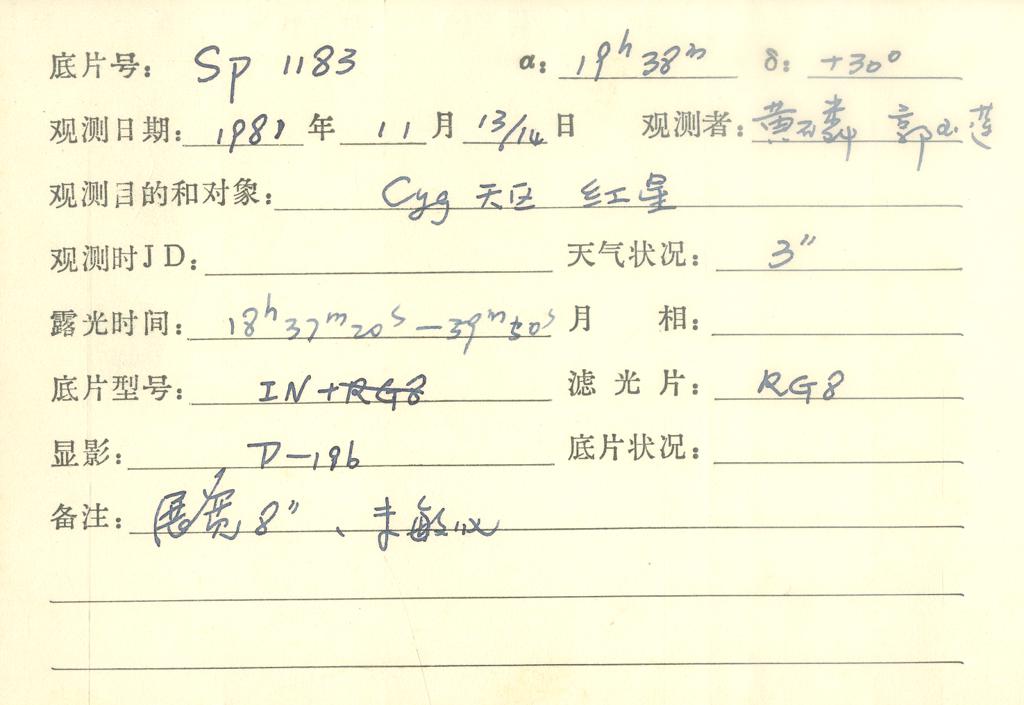 底片号: Sp 1183 α: 19h 38m δ: +30°
观测日期: 1981 年 11 月 13/14 日 观测者: 黄磷 郭小莲
观测目的和对象: Cyg 天区 红星
观测时JD: 天气状况: 3″
露光时间: 18h 37m 20s — 39m 50s 月 相:
底片型号: IN+RG8 滤光片: RG8
显影: D-196 底片状况:
备注: 展宽 8″、未敏化